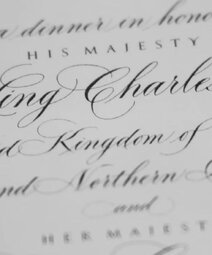 a dinner in hono
HIS MAJESTY
ing Charles
d Kingdom of
nd Northern
and
HER MAJEST